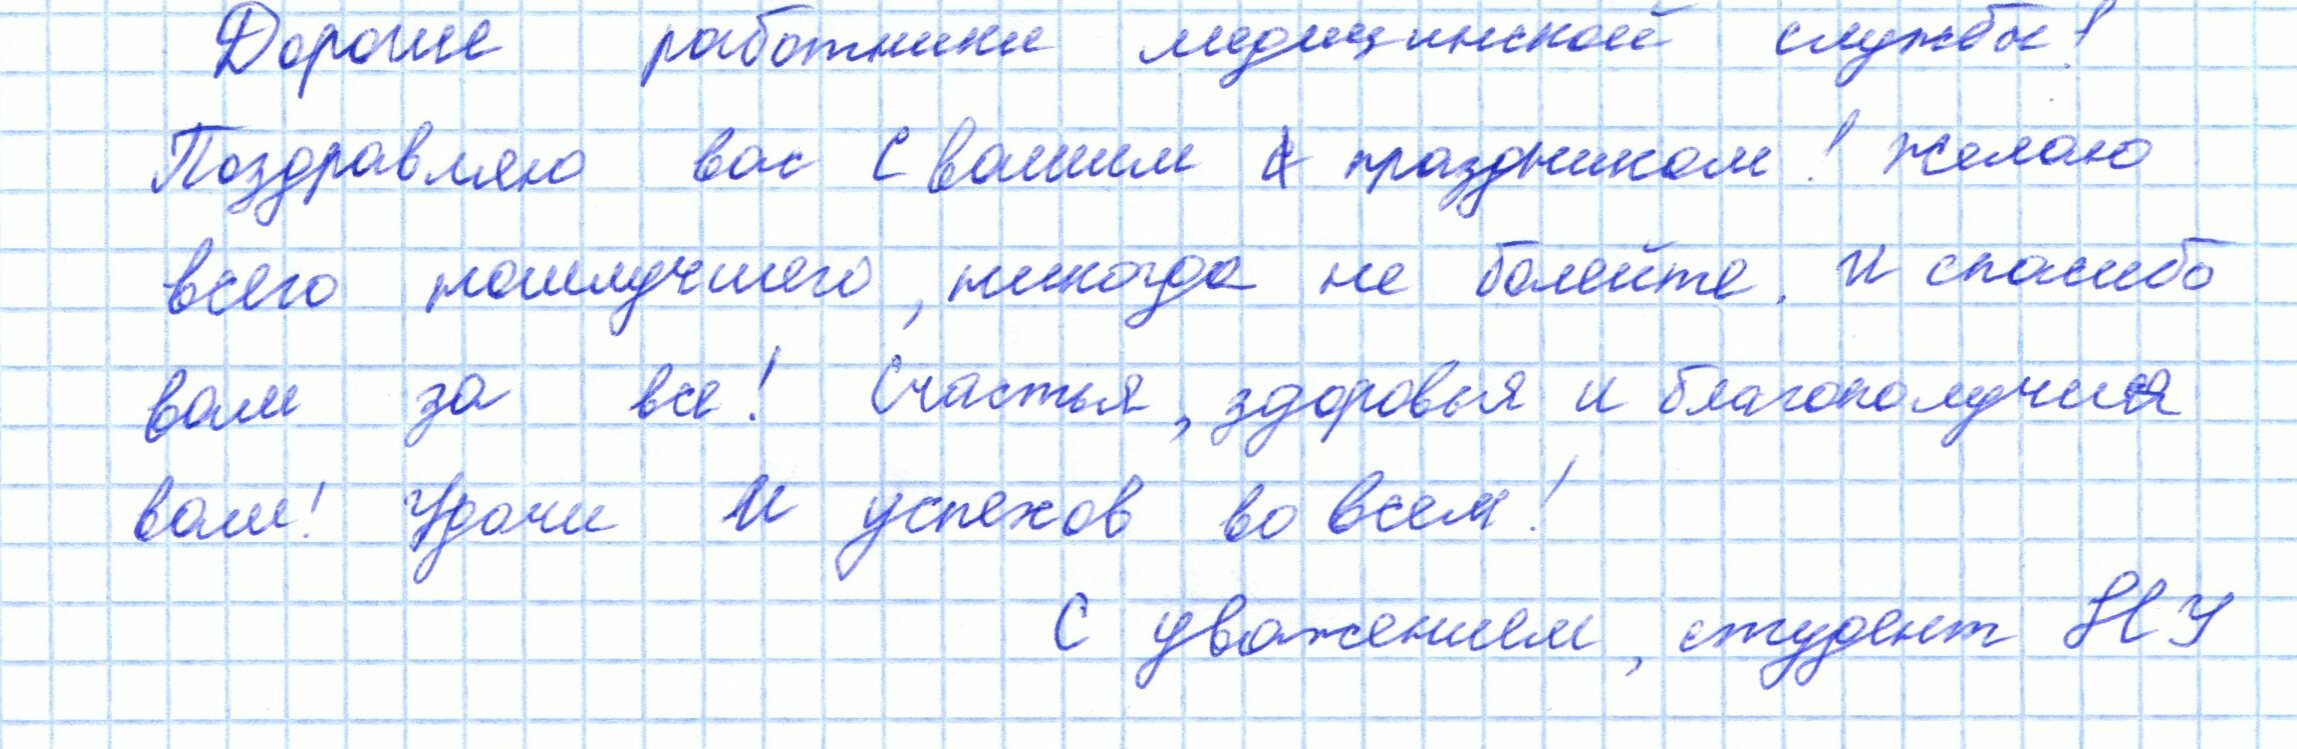 Дорогие работники медицинской службы!
Поздравляю вас с вашим праздником! Желаю
всего наилучшего, никогда не болейте. И спасибо
вам за все! Счастья, здоровья и благополучия
вам! Удачи и успехов во всем!
С уважением, студент НУ